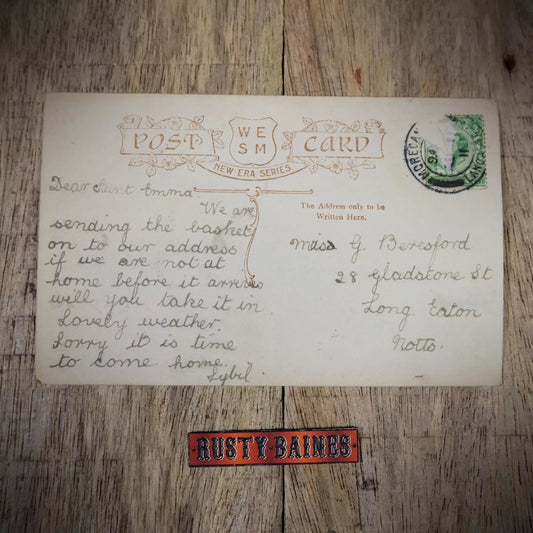 POST CARD
WE
SM
NEW-ERA SERIES
MORECAM
Dear Aunt Emma
We are
sending the basket
on to our address
if we are not at
home before it arrives
will you take it in
Lovely weather.
Sorry it is time
to come home
Sybil
The Address only to be
Written Here.
Miss G. Beresford
28 Gladstone St
Long Eaton
Notts.
RUSTY-BAINES